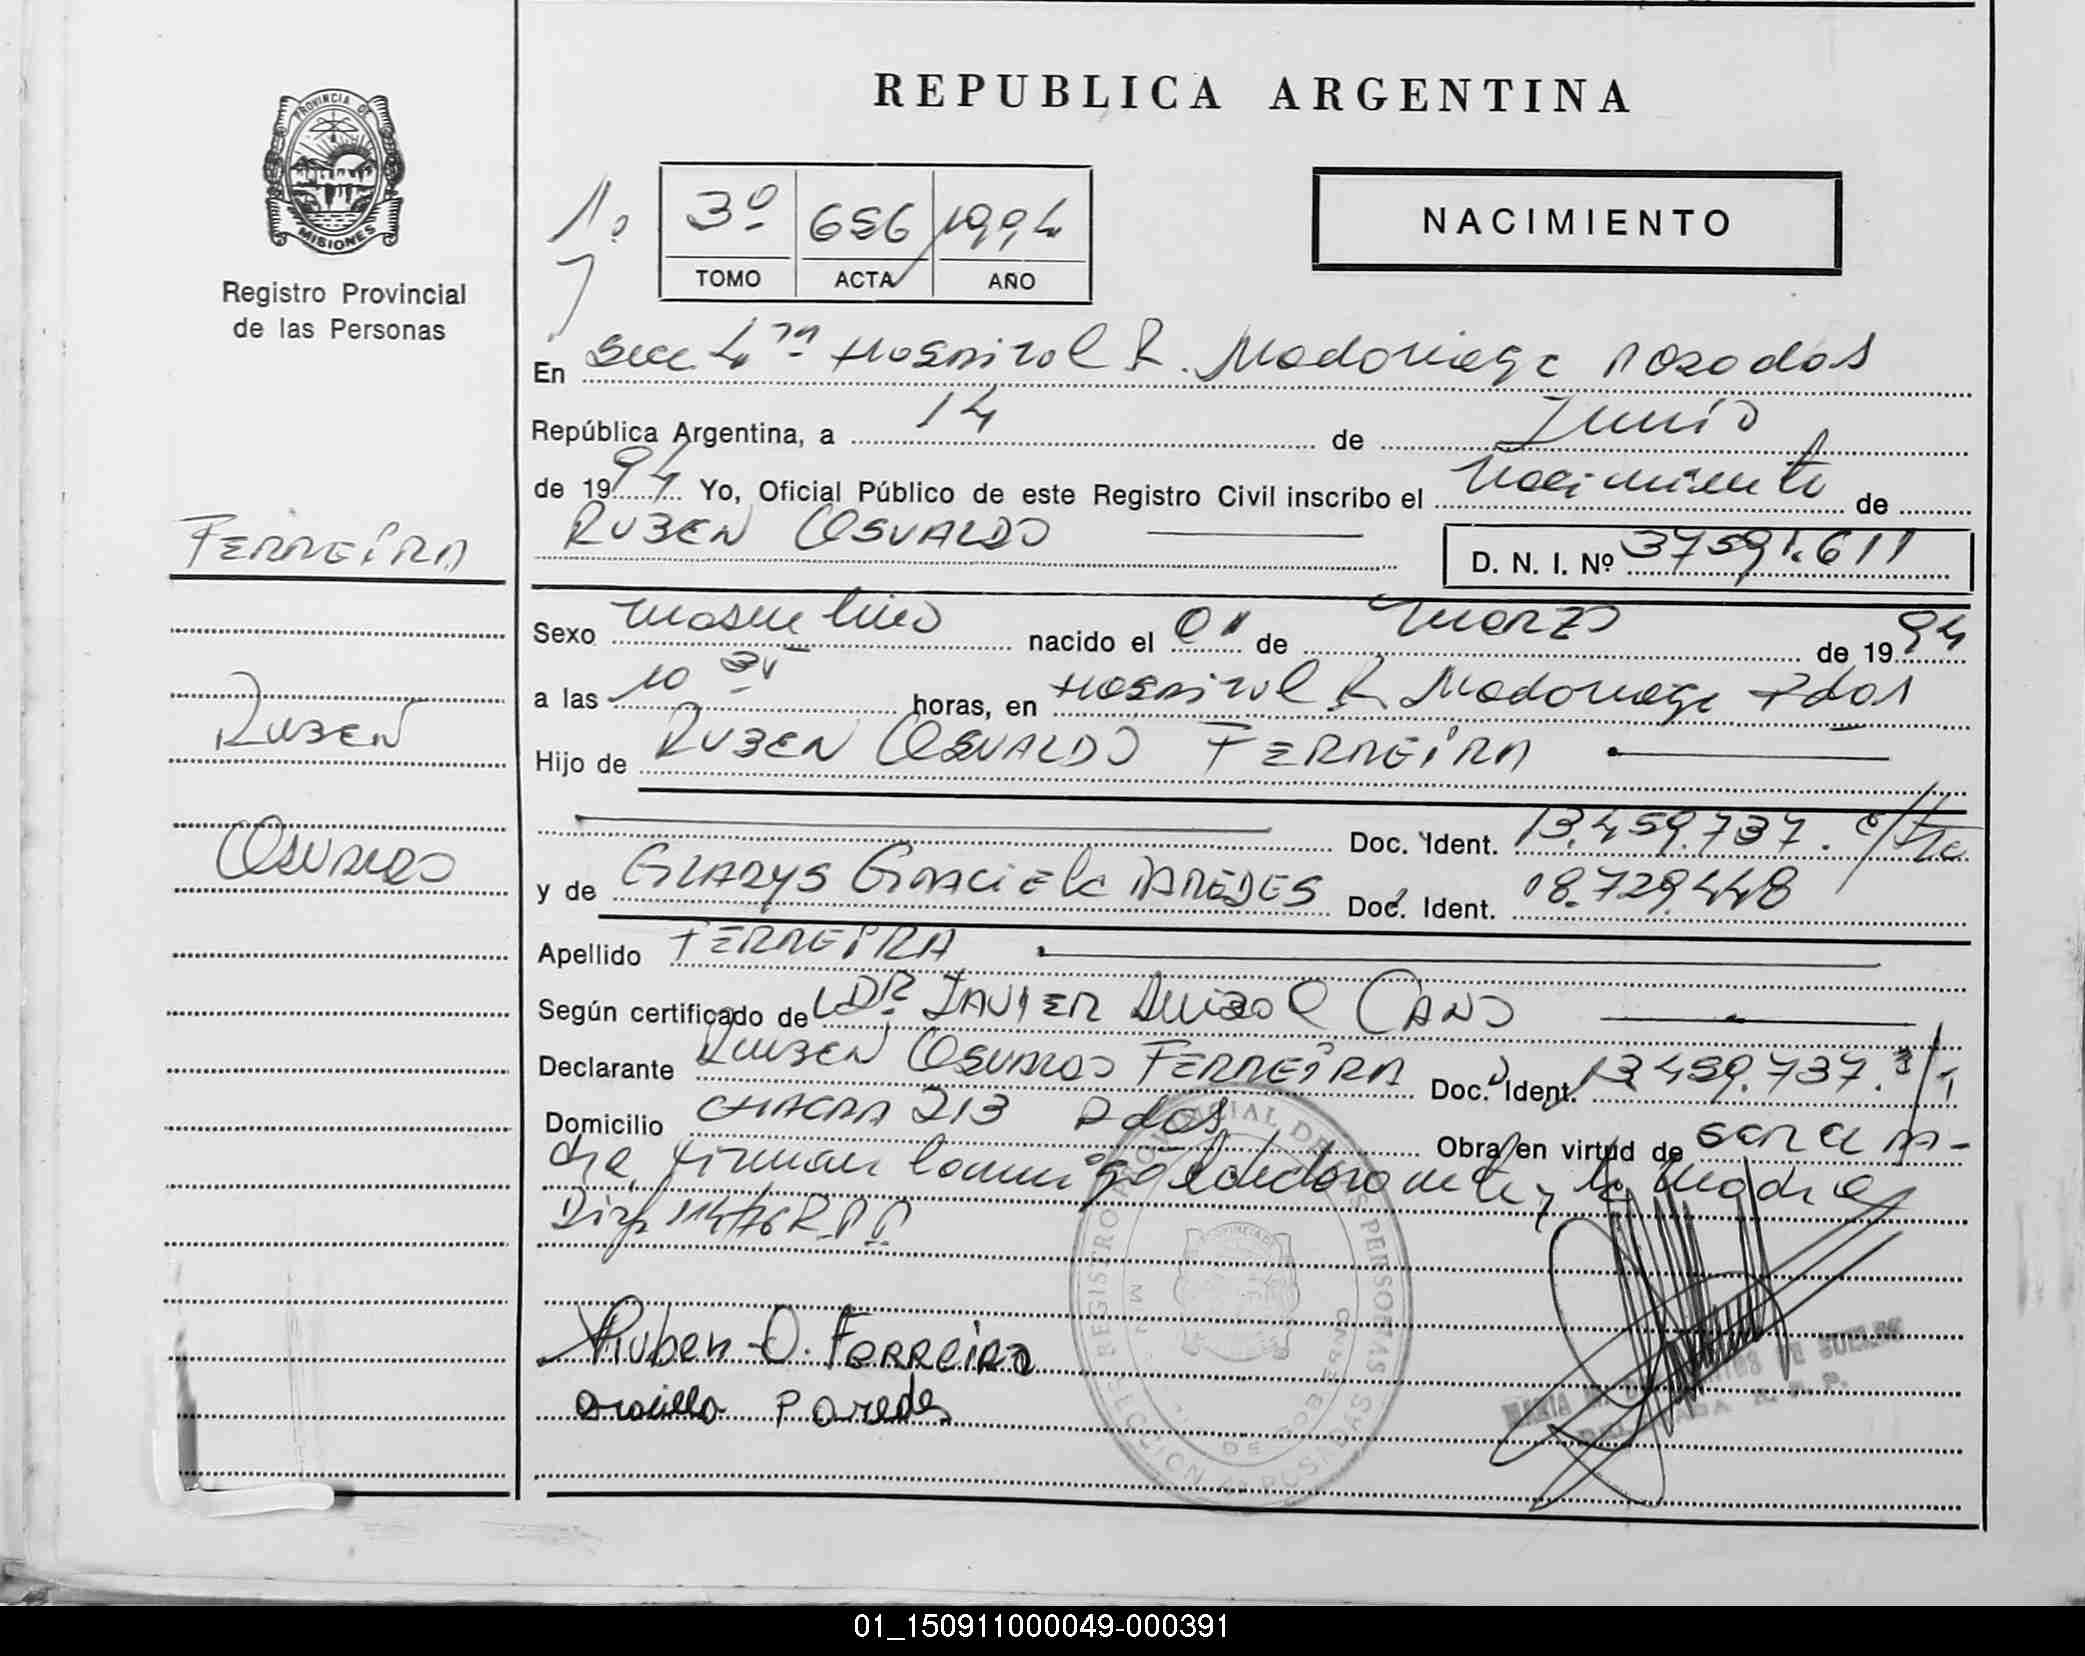 REPUBLICA ARGENTINA
PROVINCIA DE
MISIONES
Registro Provincial
de las Personas
NACIMIENTO
3º 656 1994
TOMO ACTA AÑO
En Secc 4ta Hospital R. Madariaga Posadas
República Argentina, a 14 de Junio
de 1994 Yo, Oficial Público de este Registro Civil inscribo el Nacimiento de
RUBEN OSVALDO D. N. I. Nº 37591.611
FERREIRA
Sexo masculino nacido el 01 de marzo de 1994
a las 10 horas, en Hospital R. Madariaga Pdas
RUBEN
Hijo de RUBEN OSVALDO FERREIRA
Doc. Ident. 13.459.737.
OSVALDO
y de GLADYS Graciela PAREDES Doc. Ident. 18.729.448
Apellido FERREIRA
Según certificado de DR. JAVIER CANO
Declarante RUBEN OSVALDO FERREIRA Doc. Ident. 13.459.737.
Domicilio CHACRA 213 Pdas Obra en virtud de ser el pa-
dre, firman conmigo el declarante y la madre
Disp 114/76 R.P.P.
Ruben O. Ferreira
Graciela Paredes
REGISTRO PROVINCIAL DE LAS PERSONAS
01_150911000049-000391